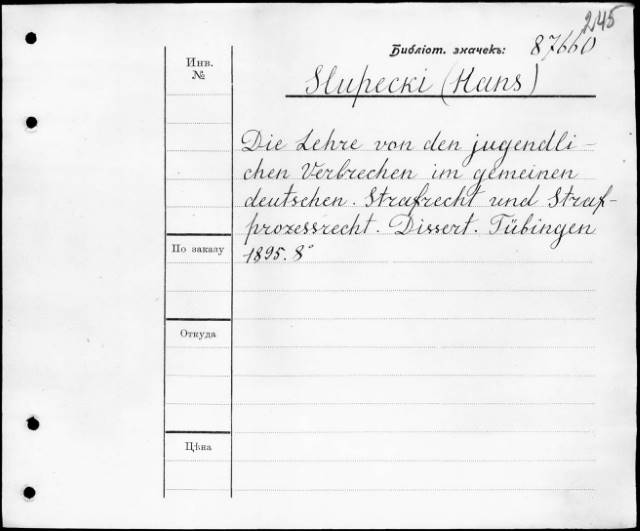 245
Библіот. значекъ: 87660
Инв.
№
Slupecki (Hans)
Die Lehre von den jugendli-
chen Verbrechen im gemeinen
deutschen. Strafrecht und Straf-
prozessrecht. Dissert. Tübingen
1895. 8°
По заказу
Откуда
Цѣна